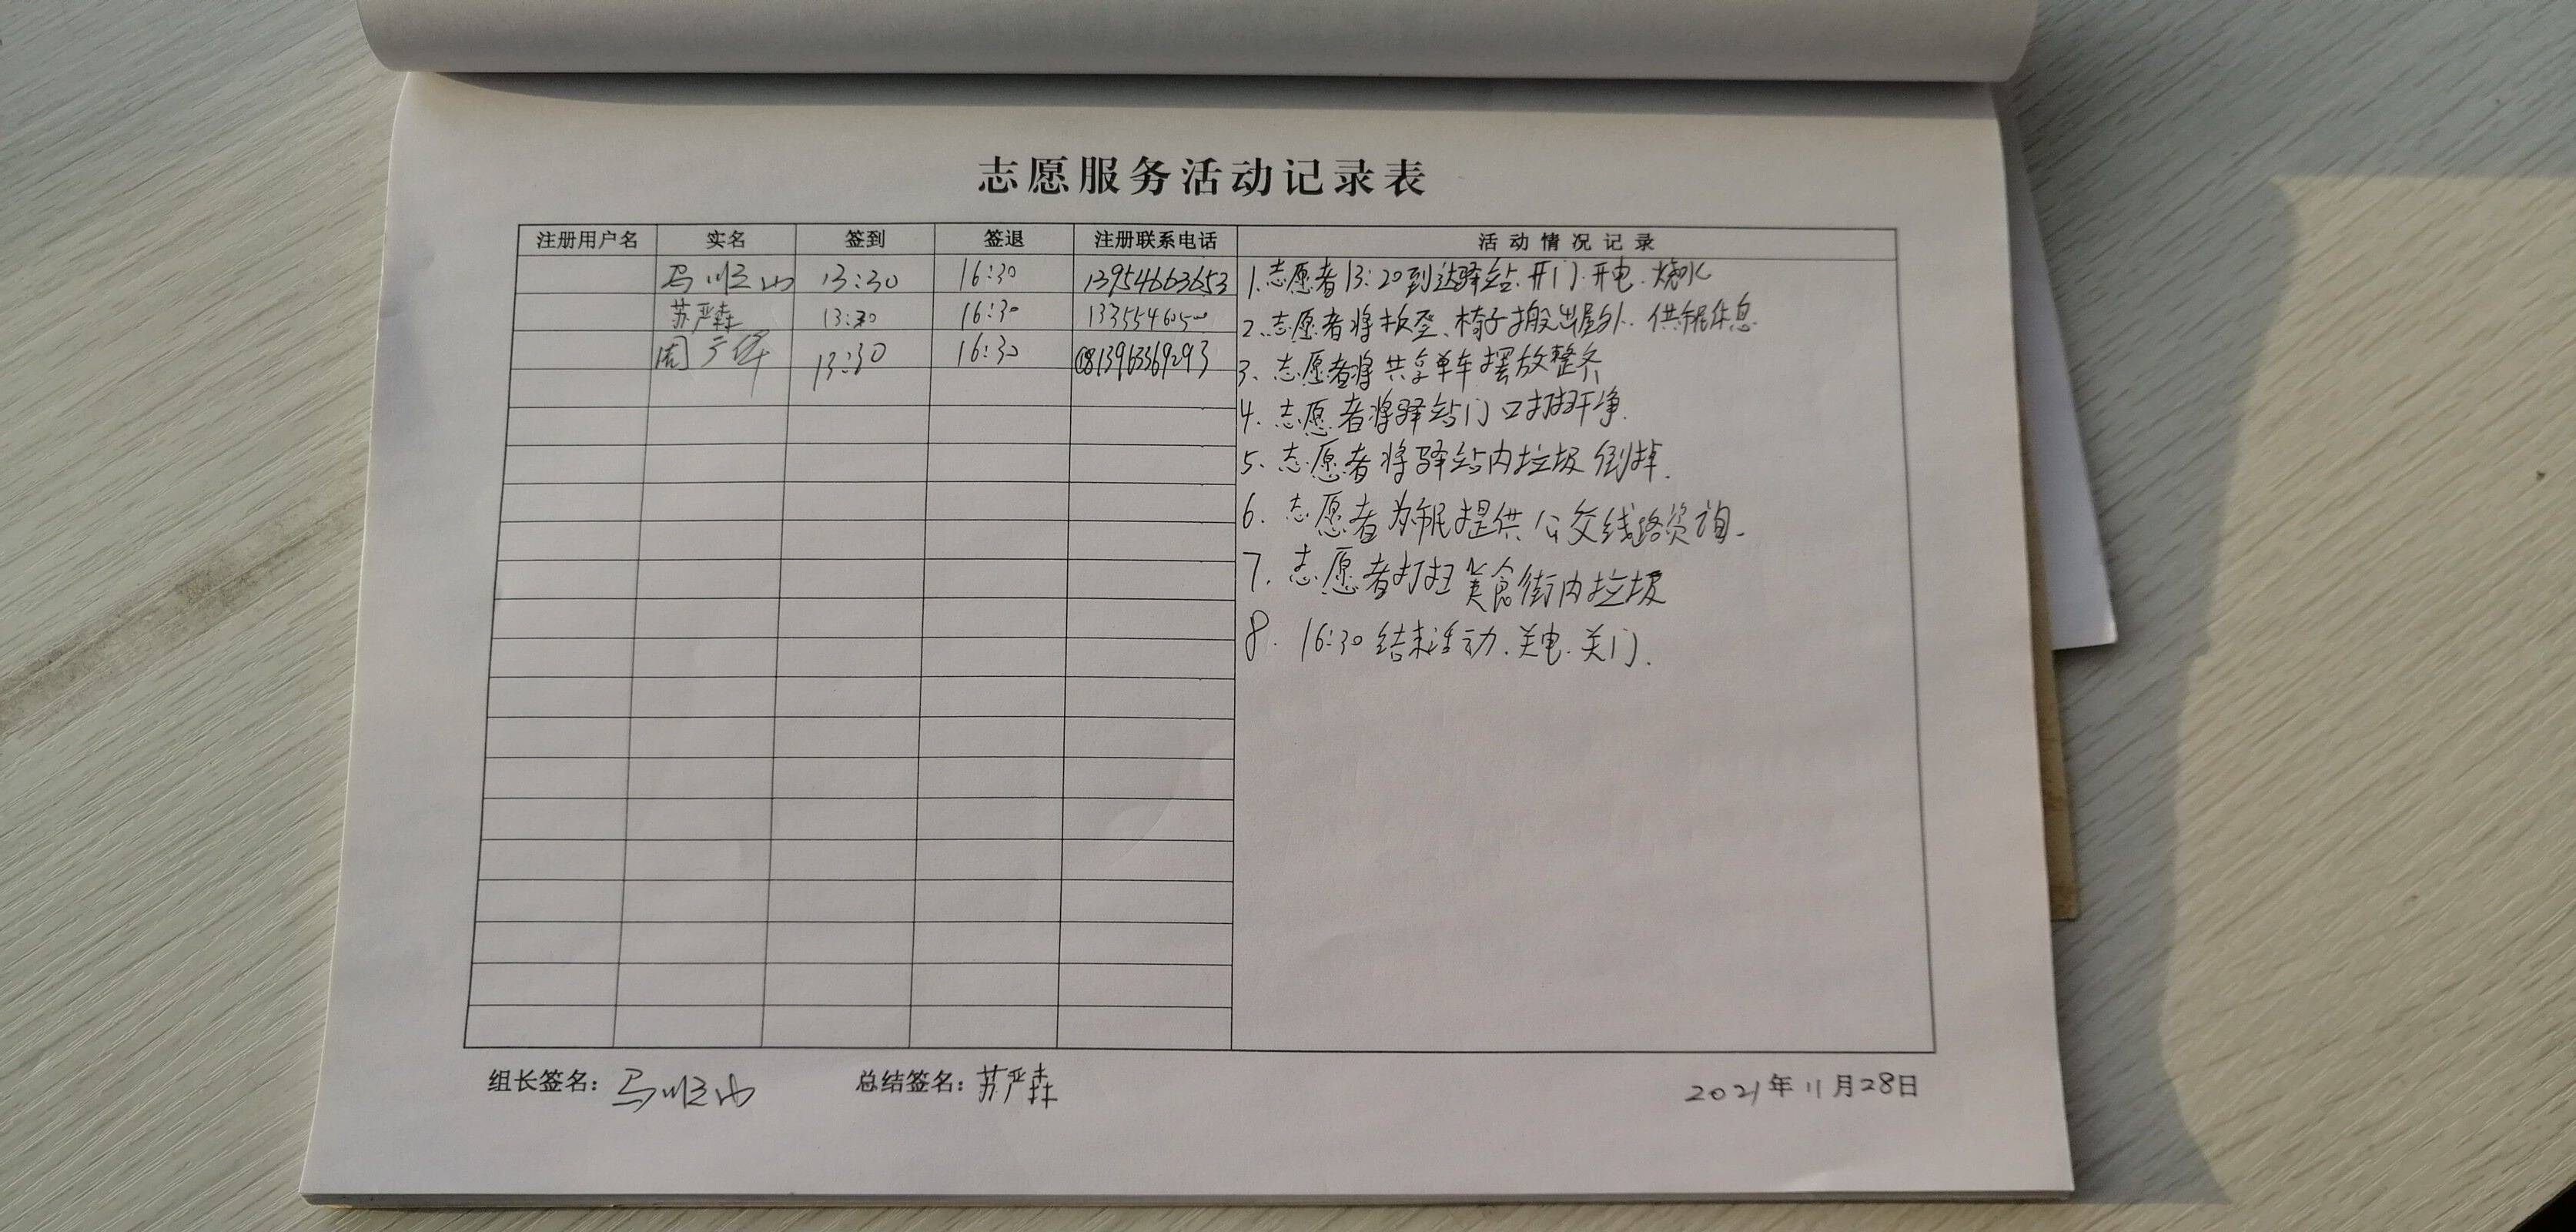 志愿服务活动记录表
注册用户名 实名 签到 签退 注册联系电话 活动情况记录
马顺山 13:30 16:30 13954663653 1.志愿者13:20到达驿站.开门.开电.烧水
苏严森 13:30 16:30 1335546500 2、志愿者将板凳、椅子搬出屋外.供市民休息
周 13:30 16:30 13963369293 3、志愿者将共享单车摆放整齐
4、志愿者将驿站门口打扫干净.
5、志愿者将驿站内垃圾倒掉.
6.志愿者为市民提供公交线路资询.
7.志愿者打扫美食街内垃圾
8.16:30结束活动.关电.关门.
组长签名：马顺山 总结签名：苏严森 2021年11月28日